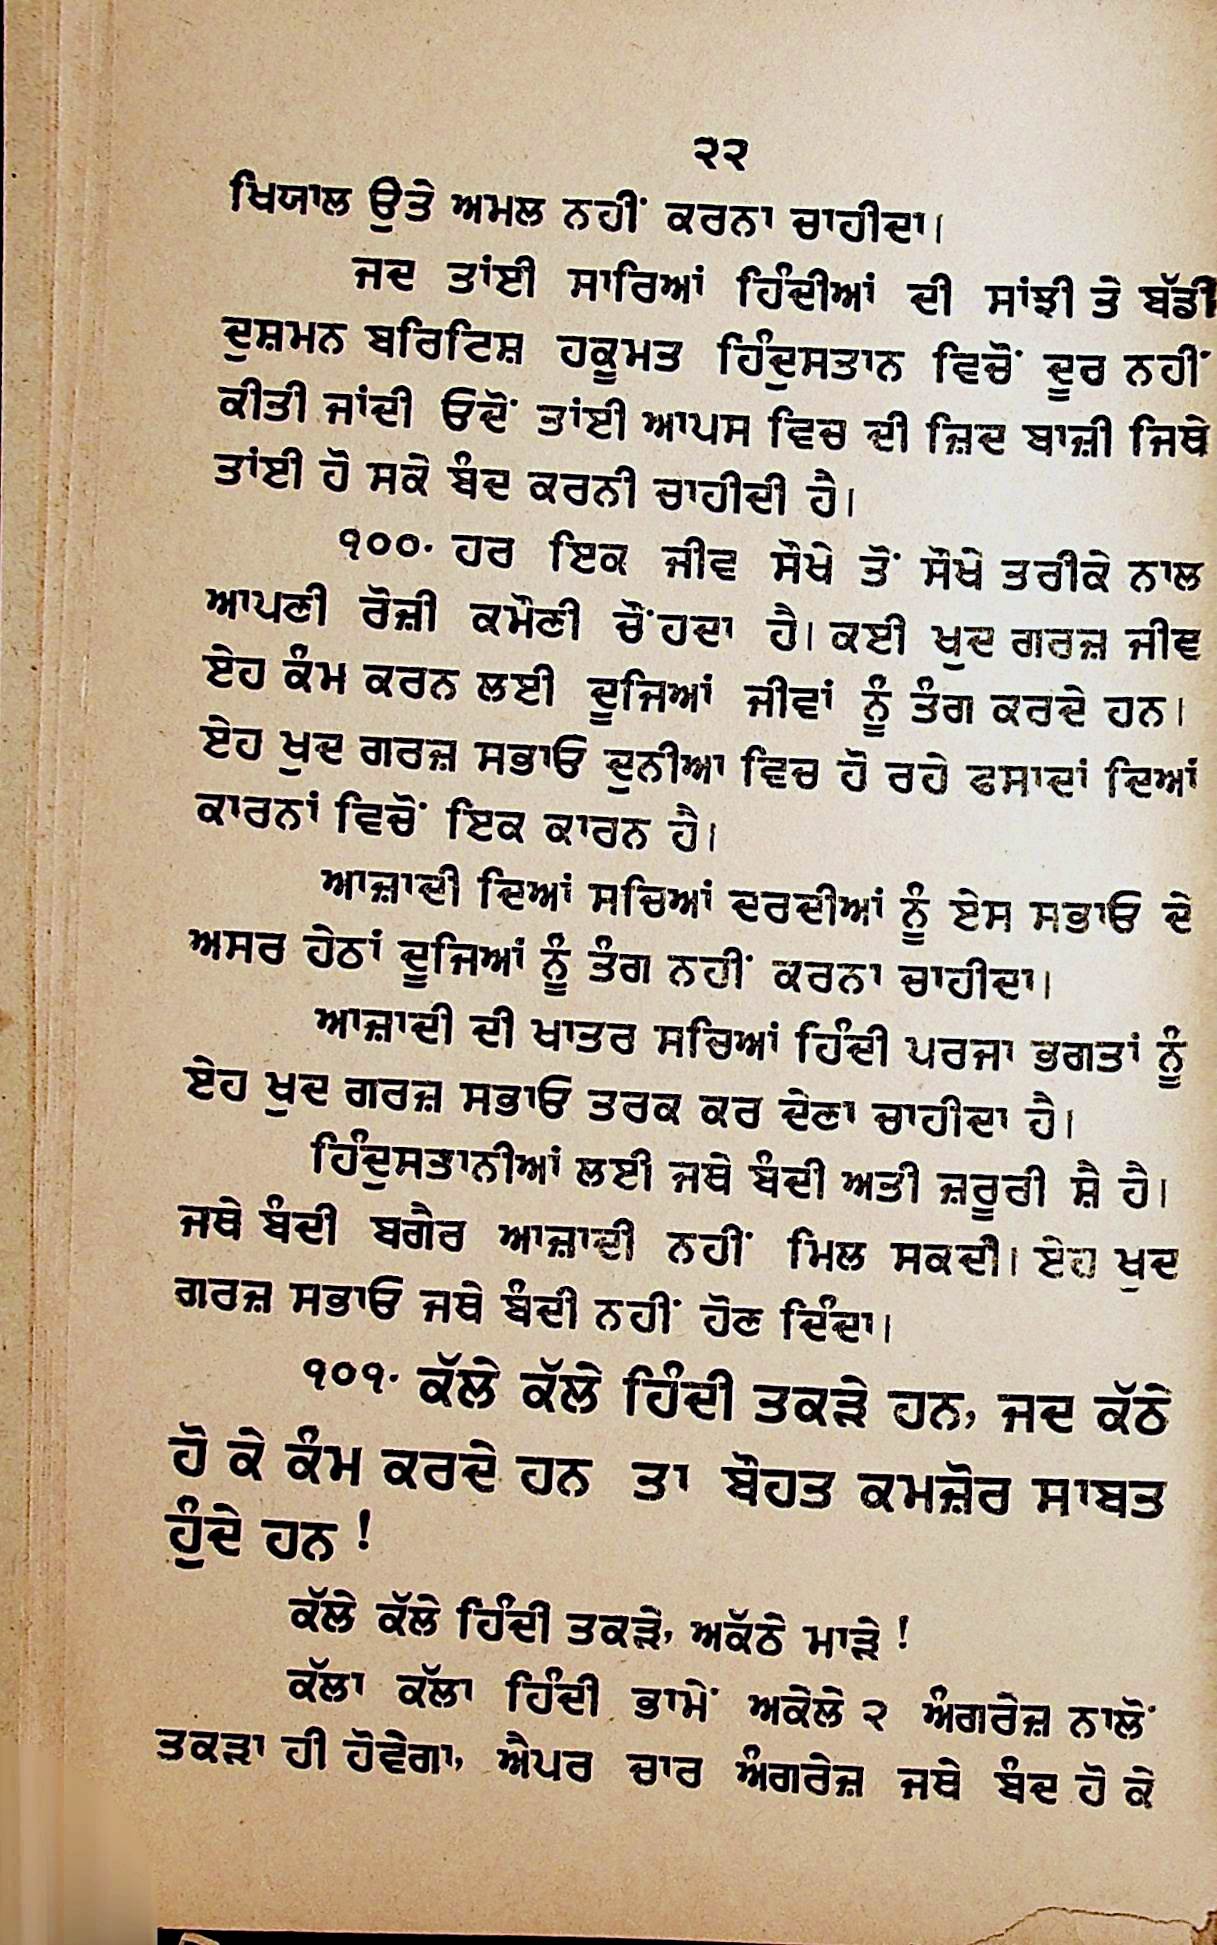 ੨੨
ਖਿਯਾਲ ਉਤੇ ਅਮਲ ਨਹੀਂ ਕਰਨਾ ਚਾਹੀਦਾ।
ਜਦ ਤਾਂਈ ਸਾਰਿਆਂ ਹਿੰਦੀਆਂ ਦੀ ਸਾਂਝੀ ਤੇ ਬੱਡੀ
ਦੁਸ਼ਮਨ ਬਰਿਟਿਸ਼ ਹਕੂਮਤ ਹਿੰਦੁਸਤਾਨ ਵਿਚੋਂ ਦੂਰ ਨਹੀਂ
ਕੀਤੀ ਜਾਂਦੀ ਓਦੋਂ ਤਾਂਈ ਆਪਸ ਵਿਚ ਦੀ ਜ਼ਿਦ ਬਾਜ਼ੀ ਜਿਥੇ
ਤਾਂਈ ਹੋ ਸਕੇ ਬੰਦ ਕਰਨੀ ਚਾਹੀਦੀ ਹੈ।
੧੦੦. ਹਰ ਇਕ ਜੀਵ ਸੌਖੇ ਤੋਂ ਸੌਖੇ ਤਰੀਕੇ ਨਾਲ
ਆਪਣੀ ਰੋਜ਼ੀ ਕਮੌਣੀ ਚੌਂਹਦਾ ਹੈ। ਕਈ ਖੁਦ ਗਰਜ਼ ਜੀਵ
ਏਹ ਕੰਮ ਕਰਨ ਲਈ ਦੂਜਿਆਂ ਜੀਵਾਂ ਨੂੰ ਤੰਗ ਕਰਦੇ ਹਨ।
ਏਹ ਖੁਦ ਗਰਜ਼ ਸਭਾਓ ਦੁਨੀਆ ਵਿਚ ਹੋ ਰਹੇ ਫਸਾਦਾਂ ਦਿਆਂ
ਕਾਰਨਾਂ ਵਿਚੋਂ ਇਕ ਕਾਰਨ ਹੈ।
ਆਜ਼ਾਦੀ ਦਿਆਂ ਸਚਿਆਂ ਦਰਦੀਆਂ ਨੂੰ ਏਸ ਸਭਾਓ ਦੇ
ਅਸਰ ਹੇਠਾਂ ਦੂਜਿਆਂ ਨੂੰ ਤੰਗ ਨਹੀਂ ਕਰਨਾ ਚਾਹੀਦਾ।
ਆਜ਼ਾਦੀ ਦੀ ਖਾਤਰ ਸਚਿਆਂ ਹਿੰਦੀ ਪਰਜਾ ਭਗਤਾਂ ਨੂੰ
ਏਹ ਖੁਦ ਗਰਜ਼ ਸਭਾਓ ਤਰਕ ਕਰ ਦੇਣਾ ਚਾਹੀਦਾ ਹੈ।
ਹਿੰਦੁਸਤਾਨੀਆਂ ਲਈ ਜਥੇ ਬੰਦੀ ਅਤੀ ਜ਼ਰੂਰੀ ਸ਼ੈ ਹੈ।
ਜਥੇ ਬੰਦੀ ਬਗੈਰ ਆਜ਼ਾਦੀ ਨਹੀਂ ਮਿਲ ਸਕਦੀ। ਏਹ ਖੁਦ
ਗਰਜ਼ ਸਭਾਓ ਜਥੇ ਬੰਦੀ ਨਹੀਂ ਹੋਣ ਦਿੰਦਾ।
੧੦੧. ਕੱਲੇ ਕੱਲੇ ਹਿੰਦੀ ਤਕੜੇ ਹਨ, ਜਦ ਕੱਠੇ
ਹੋ ਕੇ ਕੰਮ ਕਰਦੇ ਹਨ ਤਾ ਬੌਹਤ ਕਮਜ਼ੋਰ ਸਾਬਤ
ਹੁੰਦੇ ਹਨ !
ਕੱਲੇ ਕੱਲੇ ਹਿੰਦੀ ਤਕੜੇ, ਅਕੱਠੇ ਮਾੜੇ !
ਕੱਲਾ ਕੱਲਾ ਹਿੰਦੀ ਭਾਮੇਂ ਅਕੇਲੇ ੨ ਅੰਗਰੇਜ਼ ਨਾਲੋਂ
ਤਕੜਾ ਹੀ ਹੋਵੇਗਾ, ਐਪਰ ਚਾਰ ਅੰਗਰੇਜ਼ ਜਥੇ ਬੰਦ ਹੋ ਕੇ